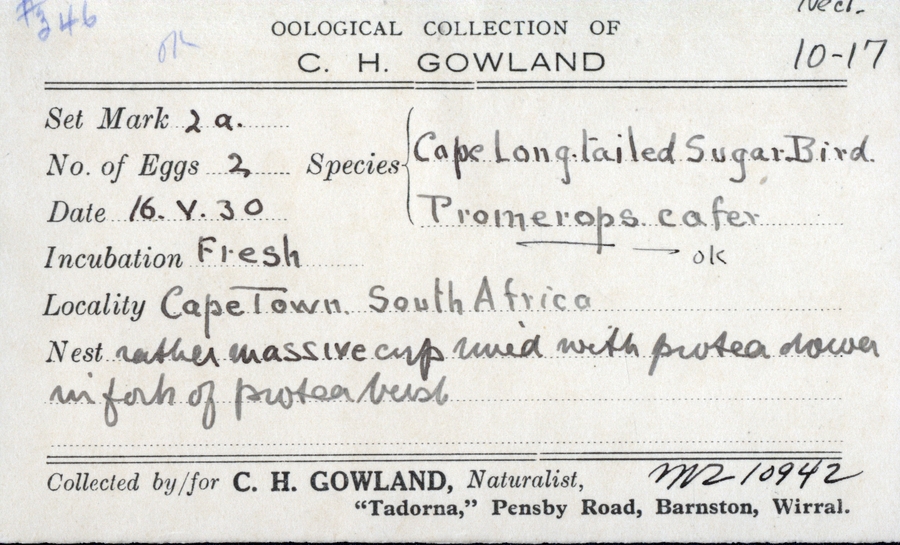 #346
ok
Nect.
OOLOGICAL COLLECTION OF
C. H. GOWLAND
10-17
Set Mark 2 a.
No. of Eggs 2
Species Cape Long-tailed Sugar Bird.
Date 16. V. 30
Promerops cafer
ok
Incubation Fresh
Locality Cape Town. South Africa
Nest rather massive cup lined with protea down
in fork of protea bush
Collected by/for C. H. GOWLAND, Naturalist,
10942
"Tadorna," Pensby Road, Barnston, Wirral.